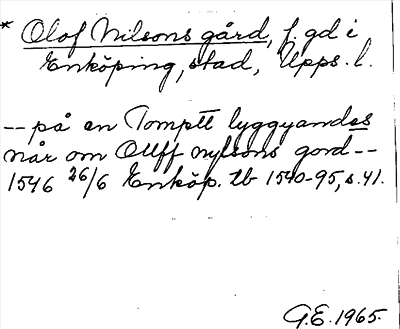 * Olof Nilsons gård, f. gd i
Enköping, stad, Upps. l.
-- på en Tomptt lyggyandes
når om Olff nylsons gord --
1546 26/6 Enköp. tb 1540-95, s. 41.
G.E. 1965.